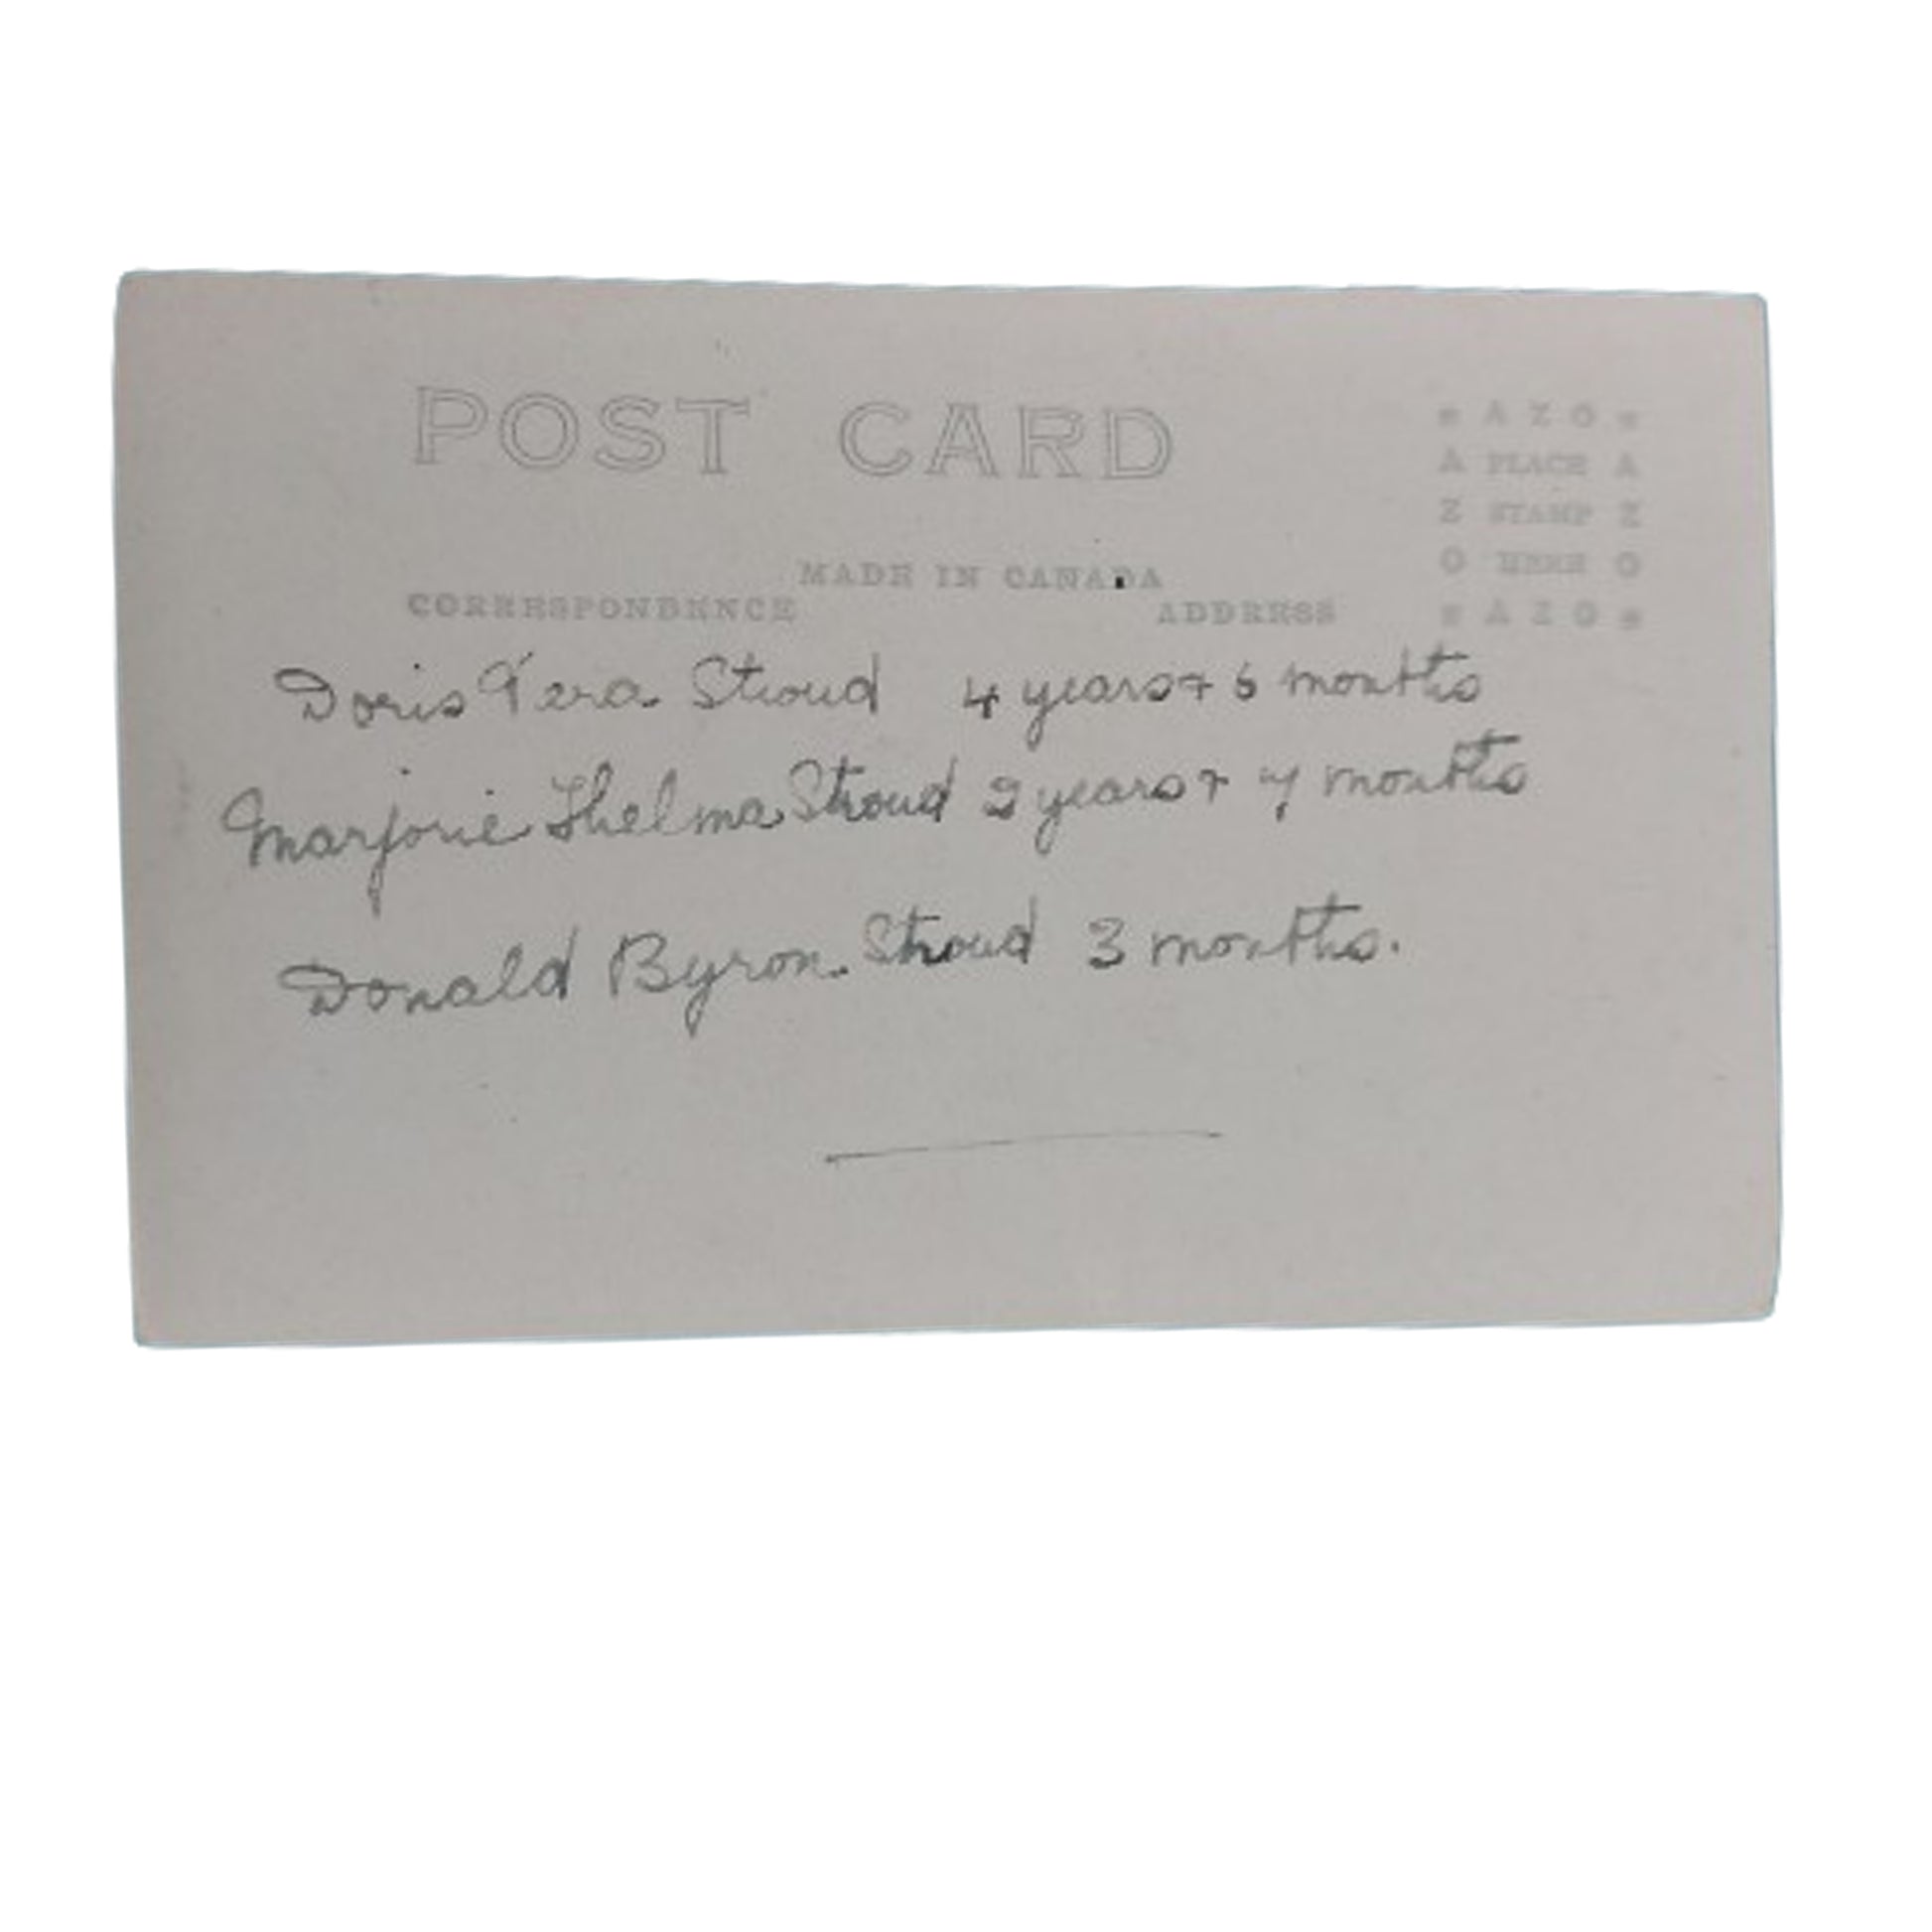 POST CARD
* A Z O *
A PLACE A
Z STAMP Z
O HERE O
* A Z O *
MADE IN CANADA
CORRESPONDENCE ADDRESS
Doris Vera Stroud 4 years + 6 months
Marjorie Thelma Stroud 2 years + 7 months
Donald Byron Stroud 3 months.